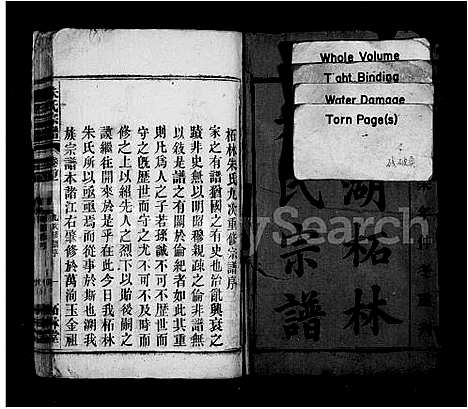 Whole Volume
Tight Binding
Water Damage
Torn Page(s)
湖柘林
氏宗譜
柘林朱氏九次重修宗譜序
家之有譜猶國之有史也治亂興衰之
蹟非史無以明昭穆親疎之倫非譜無
以敘是譜之有關於倫紀者如此其重
則凡為人之子若孫誠不可不歷世而
守之既歷世而守之尤不可不及時而
修之上以紹先人之烈下以貽後嗣之
謀繼往開來於是乎在此今日我柘林
朱氏所以亟亟焉而從事於斯也溯我
族宗譜本諸江右肇修於萬洵玉金祖
MySearch